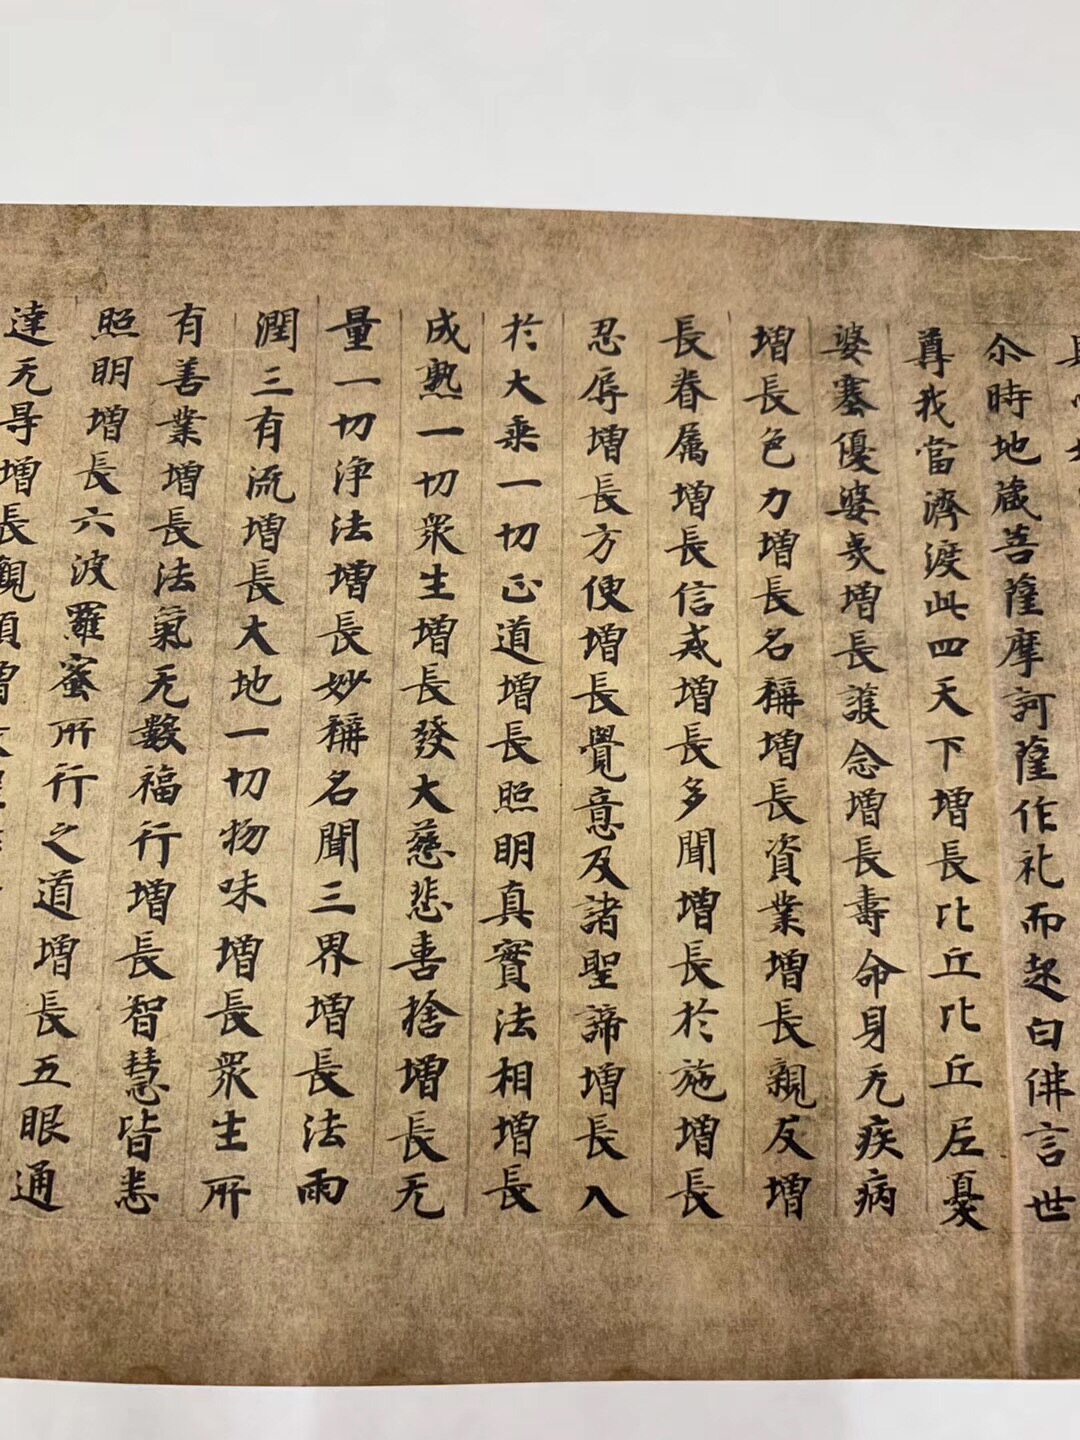 尒時地蔵菩薩摩訶薩作礼而起白佛言世
尊我當濟渡此四天下增長比丘比丘尼憂
婆塞優婆夷增長護念增長壽命身无疾病
增長色力增長名稱增長資業增長親友增
長眷属增長信戒增長多聞增長於施增長
忍辱增長方便增長覺意及諸聖諦增長入
於大乘一切正道增長照明真實法相增長
成熟一切衆生增長發大慈悲善捨增長无
量一切浄法增長妙稱名聞三界增長法雨
潤三有流增長大地一切物味增長衆生所
有善業增長法氣无數福行增長智慧皆悉
照明增長六波羅蜜所行之道增長五眼通
達无㝵增長